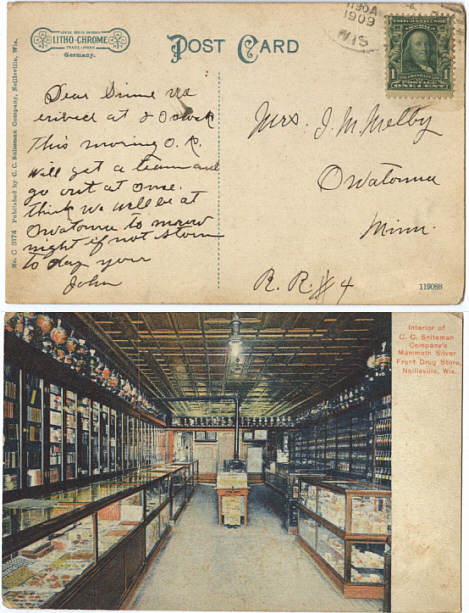 LITHO-CHROME
TRADE-MARK
Germany.
POST CARD
1130A
1909
WIS
1
ONE CENT
No. C 3174 Published by C. C. Sniteman Company, Neillsville, Wis.
Dear
erived at 8 O clock
this morning O.K.
will get a team and
go out at once.
think we will be at
Owatonna to morrow
night if not storm
to day your
John
Mrs. J. M. Melby
Owatonna
Minn.
R. R. #4
119088
Interior of
C. C. Sniteman
Company's
Mammoth Silver
Front Drug Store,
Neillsville, Wis.